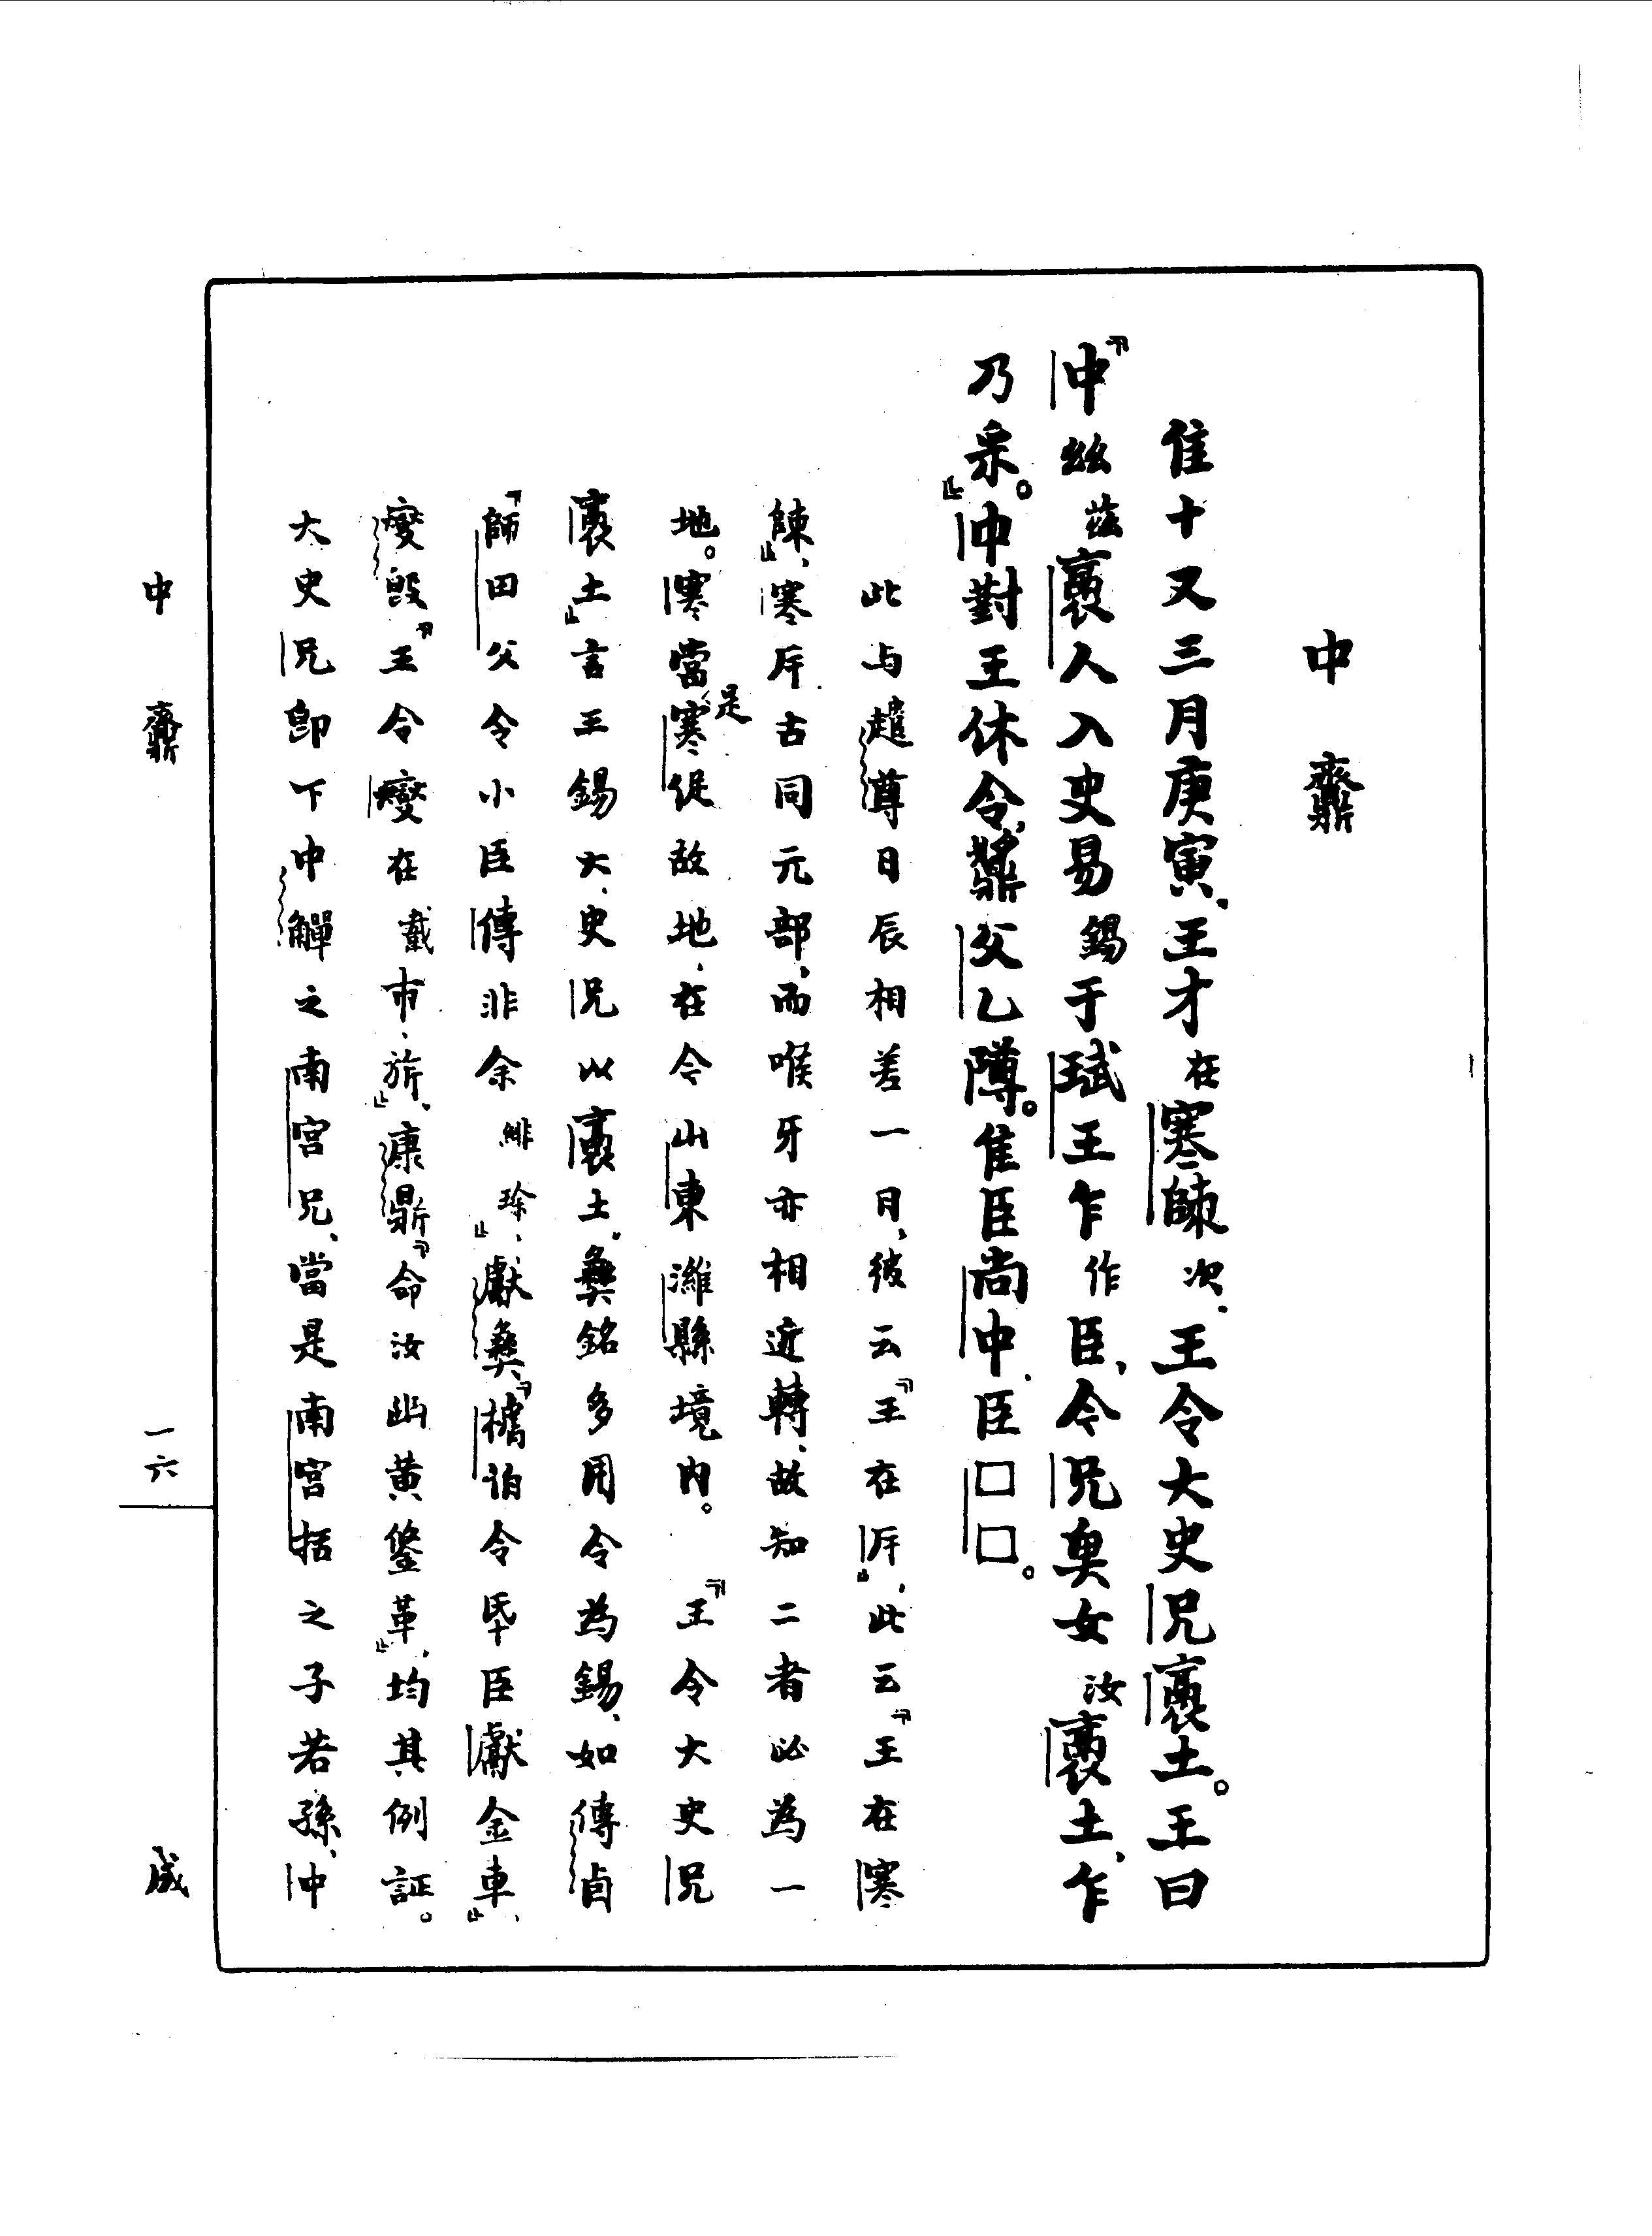 中齋
隹十又三月庚寅、王才在寒𠂤次、王令大史兄褱土。王曰
『中、𢆶茲褱人入史易錫于珷王乍作臣、今兄𢌿女汝褱土、乍
乃采。』中對王休令、𩰬父乙䵼。隹臣尚中、臣□□。
此与趞尊日辰相差一月、彼云『王在厈』、此云『王在寒
𠂤』、寒厈古同元部、而喉牙亦相近轉、故知二者必為一
地。寒當是寒促故地、在今山東濰縣境内。『王令大史兄
褱土』言王錫大史兄以褱土、彝銘多用令為錫、如傳卣
『師田父令小臣傳非余緋琭』、獻彝『楷伯令氒臣獻金車』、
𤼈𣪘『王令𤼈在戴巿、旂』、康鼎『命汝幽黃鋚革』、均其例証。
大史兄即下中觶之南宮兄、當是南宮括之子若孫、中
中齋
一六
成